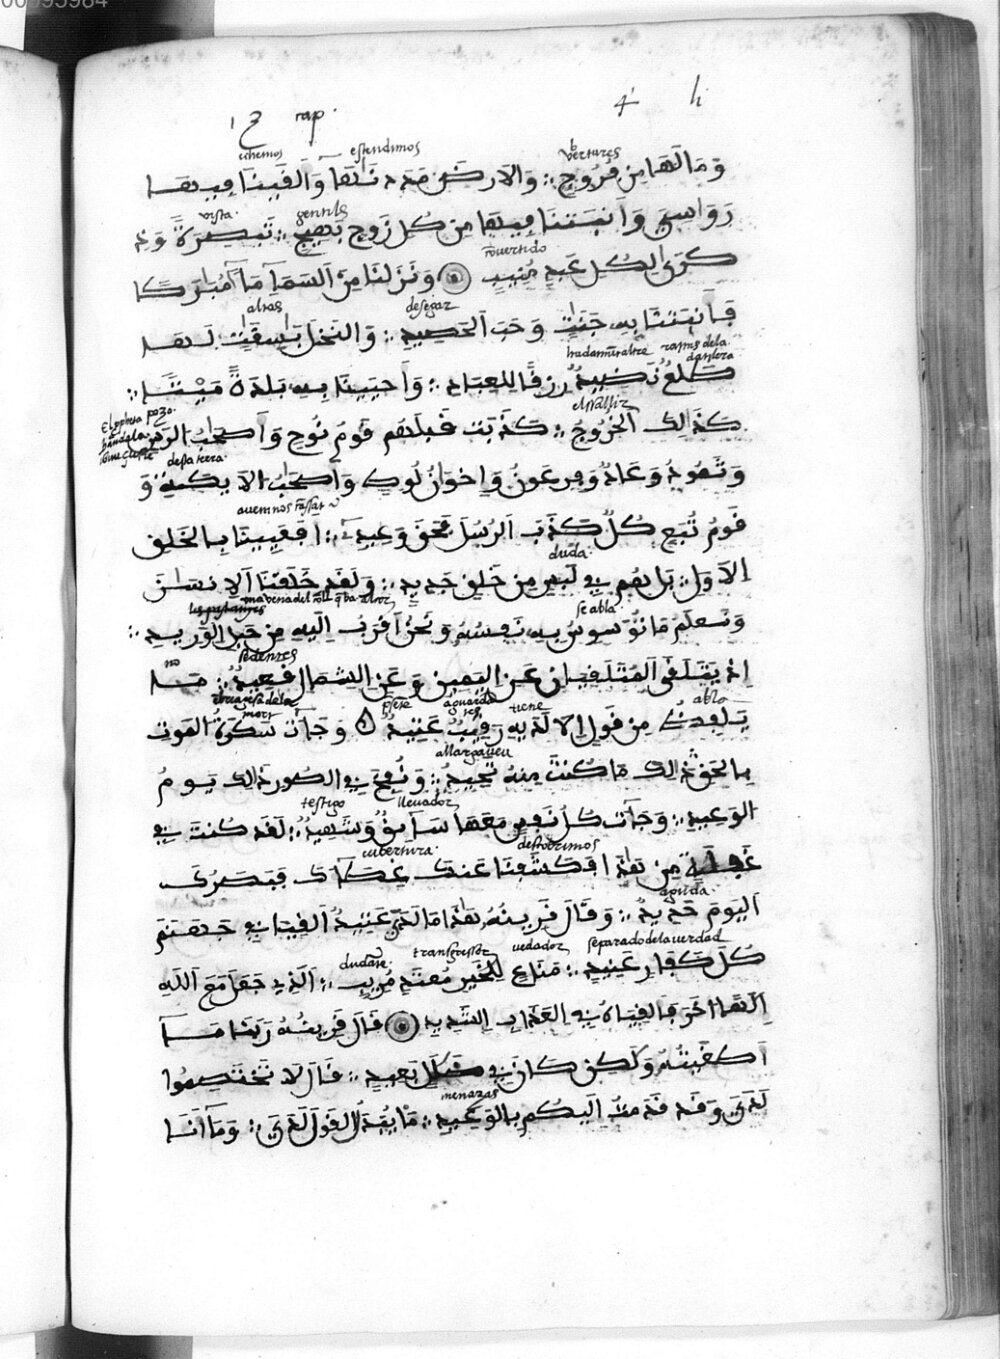 13 cap. 4 h
echemos estendimos verturas
وَمَا لَهَا مِن فُرُوجٍ وَالَارْضَ مَدَدْنَٰهَا وَأَلْقَيْنَا فِيهَا
vista gentils
رَوَاسِيَ وَأَنبَتْنَا فِيهَا مِن كُلِّ زَوْجٍ بَهِيجٍ تَبْصِرَةً وَذِ
covertido
كْرَىٰ لِكُلِّ عَبْدٍ مُنِيبٍ وَنَزَّلْنَا مِنَ السَّمَآءِ مَآءً مُبَٰرَكًا
altas desegar
فَأَنبَتْنَا بِهِ جَنَّٰتٍ وَحَبَّ الْحَصِيدِ وَالنَّخْلَ بَاسِقَٰتٍ لَهَا
rams dela datilera
طَلْعٌ نَضِيدٌ رِزْقًا لِلْعِبَادِ وَأَحْيَيْنَا بِهِ بَلْدَةً مَيْتًا
el sallir
pozo
كَذَٰلِكَ الْخُرُوجُ كَذَّبَتْ قَبْلَهُمْ قَوْمُ نُوحٍ وَأَصْحَٰبُ الرَّسِّ
desta tierra
وَثَمُودُ وَعَادٌ وَفِرْعَوْنُ وَإِخْوَانُ لُوطٍ وَأَصْحَٰبُ الَايْكَةِ وَ
avemnos
قَوْمُ تُبَّعٍ كُلٌّ كَذَّبَ الرُّسُلَ فَحَقَّ وَعِيدِ أَفَعَيِينَا بِالْخَلْقِ
duda
الَاوَّلِ بَلْ هُمْ فِي لَبْسٍ مِنْ خَلْقٍ جَدِيدٍ وَلَقَدْ خَلَقْنَا الِانسَٰنَ
se abla
وَنَعْلَمُ مَا تُوَسْوِسُ بِهِ نَفْسُهُ وَنَحْنُ أَقْرَبُ إِلَيْهِ مِنْ حَبْلِ الْوَرِيدِ
no sedentes
إِذْ يَتَلَقَّى الْمُتَلَقِّيَانِ عَنِ الْيَمِينِ وَعَنِ الشِّمَالِ قَعِيدٌ مَا
mort tiene abla
يَلْفِظُ مِن قَوْلٍ إِلَّا لَدَيْهِ رَقِيبٌ عَتِيدٌ وَجَآءَتْ سَكْرَةُ الْمَوْتِ
بِالْحَقِّ ذَٰلِكَ مَا كُنتَ مِنْهُ تَحِيدُ وَنُفِخَ فِي الصُّورِ ذَٰلِكَ يَوْمُ
testigo llevador
الْوَعِيدِ وَجَآءَتْ كُلُّ نَفْسٍ مَعَهَا سَآئِقٌ وَشَهِيدٌ لَقَدْ كُنتَ فِي
cubertura
غَفْلَةٍ مِنْ هَٰذَا فَكَشَفْنَا عَنكَ غِطَآءَكَ فَبَصَرُكَ
aguda
الْيَوْمَ حَدِيدٌ وَقَالَ قَرِينُهُ هَٰذَا مَا لَدَيَّ عَتِيدٌ أَلْقِيَا فِي جَهَنَّمَ
transgressor vedador separado de la verdad
كُلَّ كَفَّارٍ عَنِيدٍ مَنَّاعٍ لِلْخَيْرِ مُعْتَدٍ مُرِيبٍ الَّذِي جَعَلَ مَعَ اللَّهِ
إِلَٰهًا اخَرَ فَأَلْقِيَاهُ فِي الْعَذَابِ الشَّدِيدِ قَالَ قَرِينُهُ رَبَّنَا مَا
أَطْغَيْتُهُ وَلَٰكِن كَانَ فِي ضَلَٰلٍ بَعِيدٍ قَالَ لَا تَخْتَصِمُوا
menazas
لَدَيَّ وَقَدْ قَدَّمْتُ إِلَيْكُم بِالْوَعِيدِ مَا يُبَدَّلُ الْقَوْلُ لَدَيَّ وَمَآ أَنَا